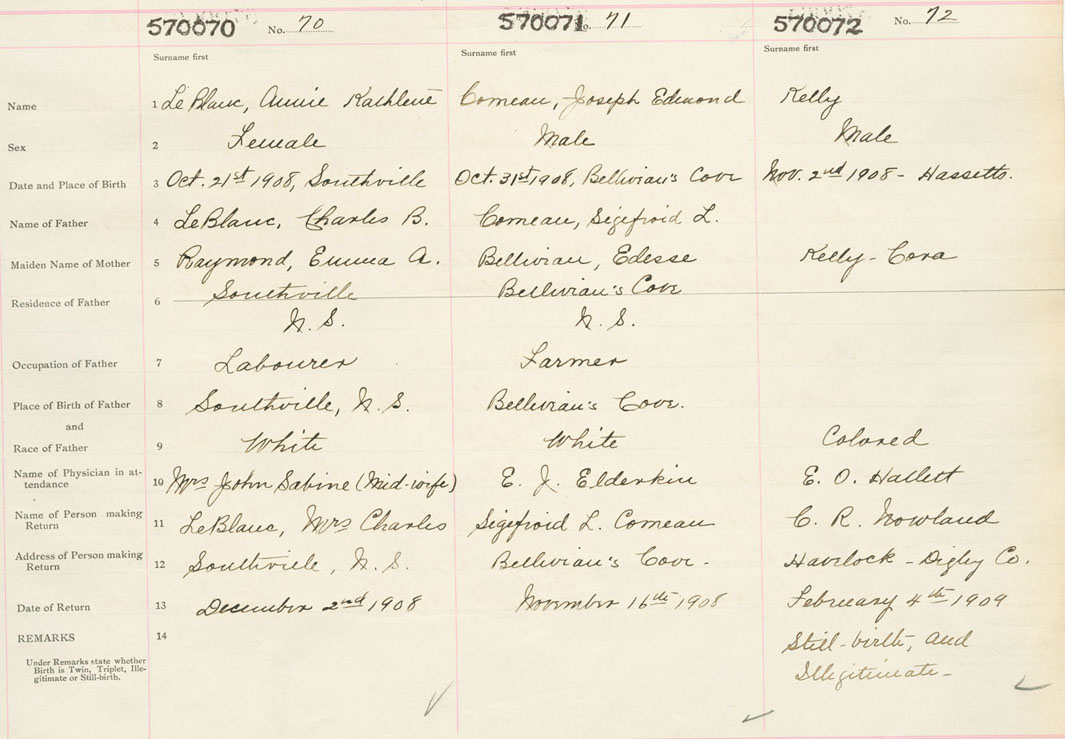 570070 No. 70 570071 No. 71 570072 No. 72
Surname first Surname first Surname first
Name 1 LeBlanc, Annie Kathlene Comeau, Joseph Edmond Kelly
Sex 2 Female Male Male
Date and Place of Birth 3 Oct. 21st 1908, Southville Oct. 31st 1908, Bellivian's Cove Nov. 2nd 1908 - Hassetts.
Name of Father 4 LeBlanc, Charles B. Comeau, Sigefroid L.
Maiden Name of Mother 5 Raymond, Emma A. Bellivian, Edesse Kelly - Cora
Residence of Father 6 Southville Bellivian's Cove
N. S. N. S.
Occupation of Father 7 Labourer Farmer
Place of Birth of Father 8 Southville, N. S. Bellivian's Cove.
and
Race of Father 9 White White Colored
Name of Physician in at-
tendance 10 Mrs John Sabine (Mid-wife) E. J. Elderkin E. O. Hallett
Name of Person making
Return 11 LeBlanc, Mrs Charles Sigefroid L. Comeau C. R. Nowland
Address of Person making
Return 12 Southville, N. S. Bellivian's Cove. Havelock - Digby Co.
Date of Return 13 December 2nd 1908 November 16th 1908 February 4th 1909
REMARKS 14 Still-birth, and
Under Remarks state whether
Birth is Twin, Triplet, Ille-
gitimate or Still-birth. Illegitimate -